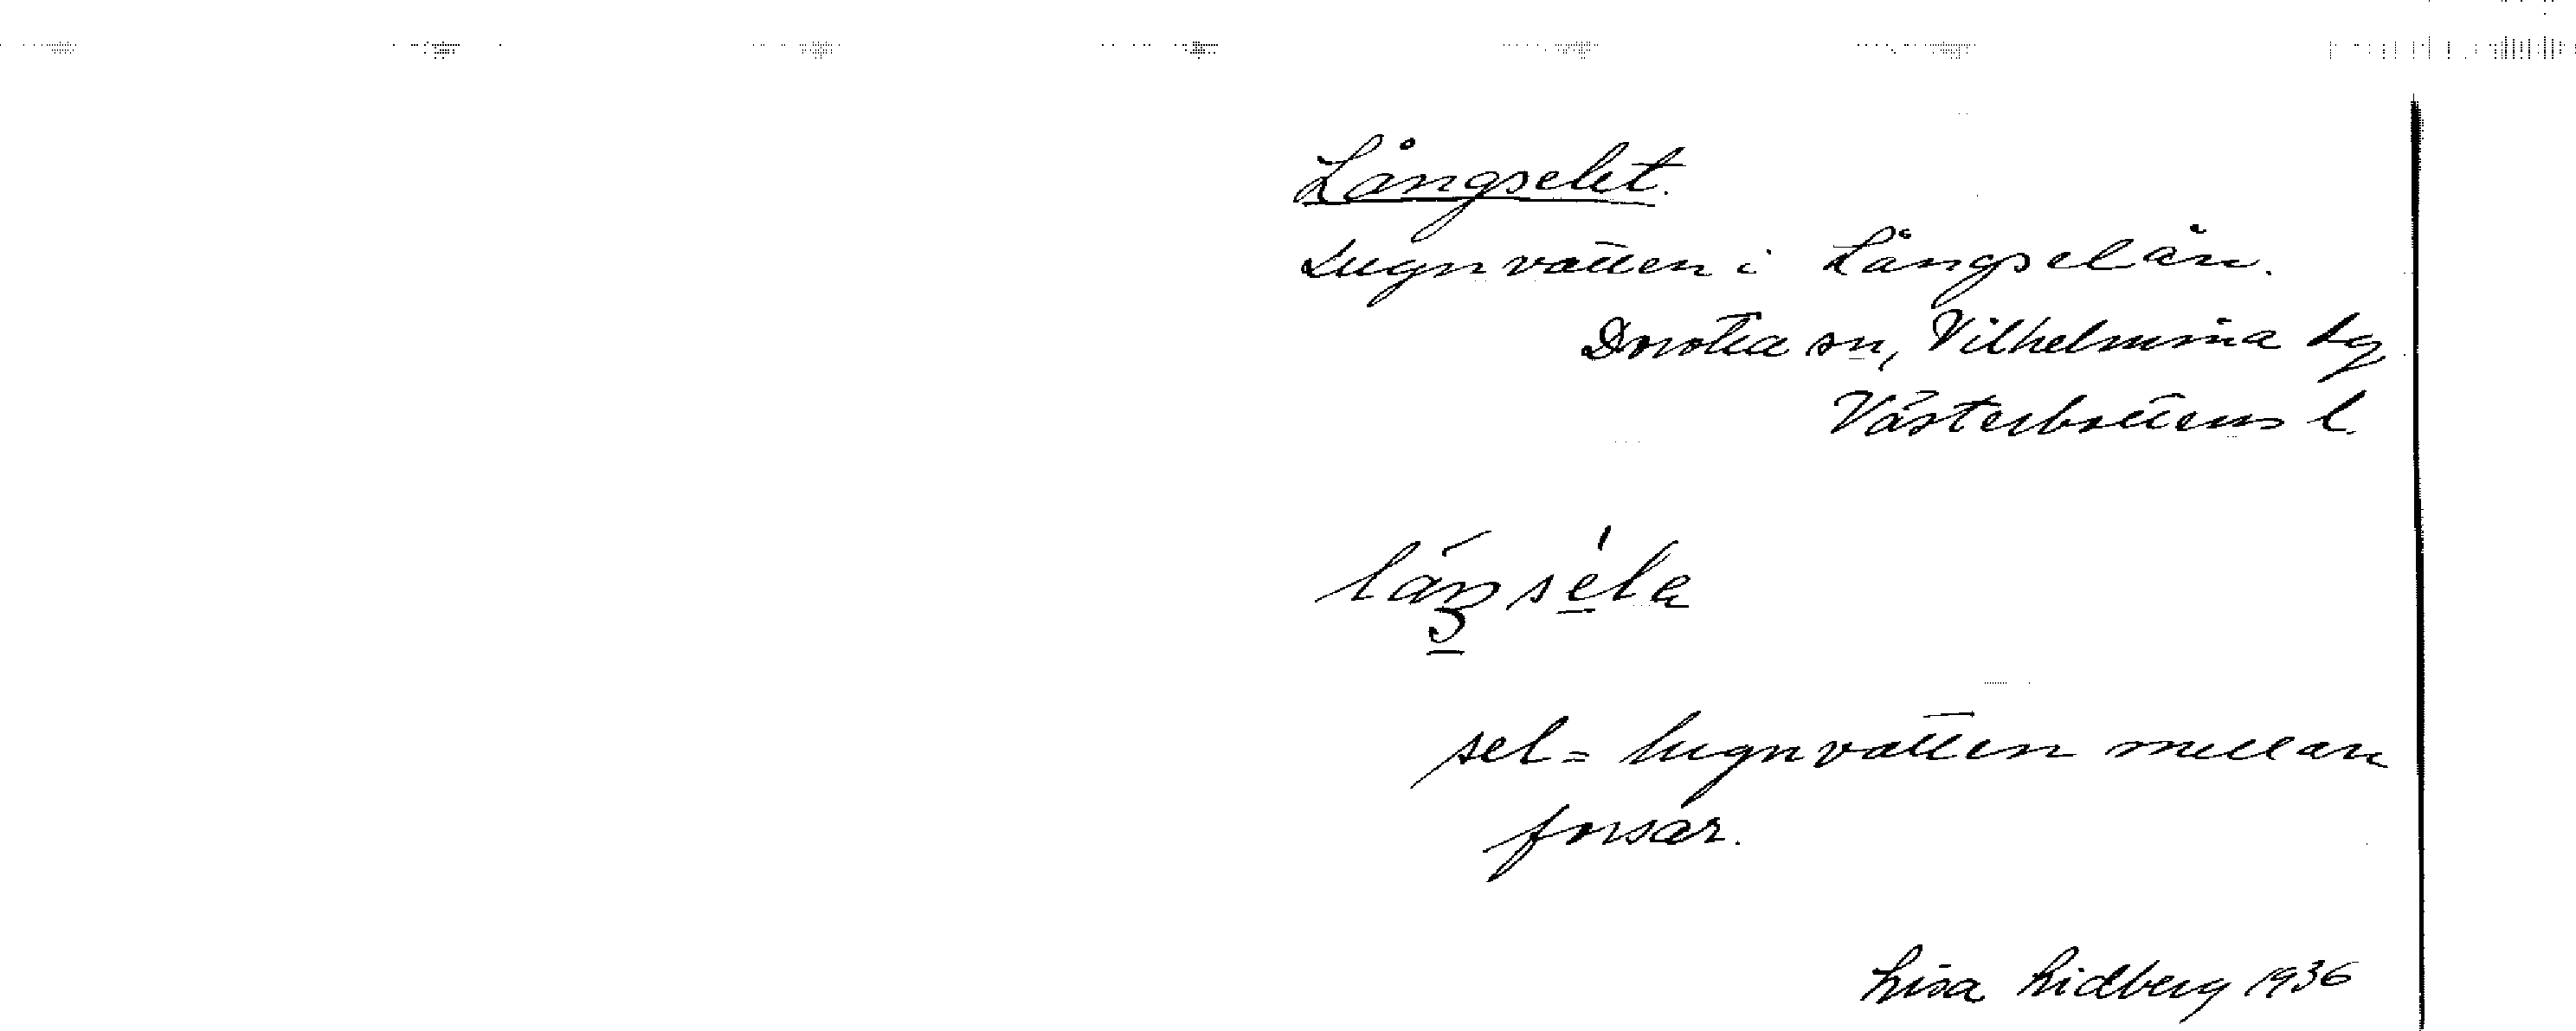 Långselet.
Lugnvatten i Långselån.
Dorotea sn, Vilhelmina tg
Västerbottens l.
sel = lugnvatten mellan
forsar.
Lisa Lidberg 1936